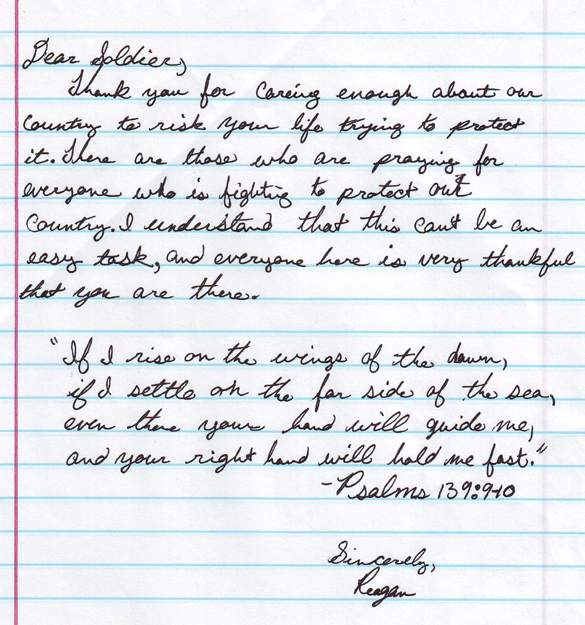 Dear Soldier,
Thank you for careing enough about our
country to risk your life trying to protect
it. There are those who are praying for
everyone who is fighting to protect our
country. I understand that this can't be an
easy task, and everyone here is very thankful
that you are there.
"If I rise on the wings of the dawn,
if I settle on the far side of the sea,
even there your hand will guide me,
and your right hand will hold me fast."
-Psalms 139:9-10
Sincerely,
Reagan